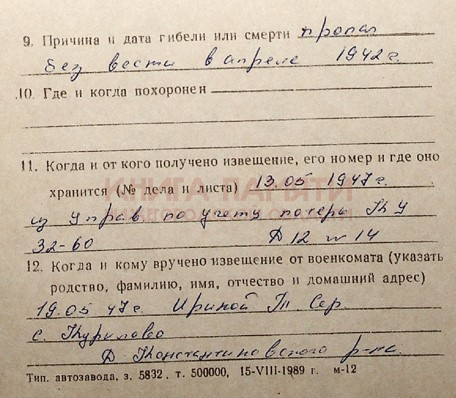 9. Причина и дата гибели или смерти пропал
без вести в апреле 1942 г.
10. Где и когда похоронен
11. Когда и от кого получено извещение, его номер и где оно
хранится (№ дела и листа) 13.05 1947 г.
КНИГА ПАМЯТИ
из Управ по учету потерь
32-60 Д 12 л 14
12. Когда и кому вручено извещение от военкомата (указать
родство, фамилию, имя, отчество и домашний адрес)
19.05 47 г. Ириной Т. Сер
с. Курилово
Д. Константиновского р-на.
Тип. автозавода, з. 5832, т. 500000, 15-VIII-1989 г. м-12